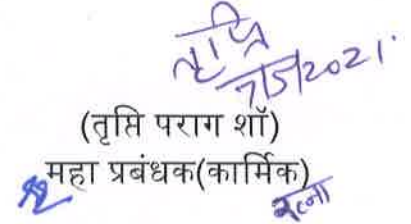 तृप्ति
7/5/2021.
(तृप्ति पराग शॉ)
महा प्रबंधक(कार्मिक)